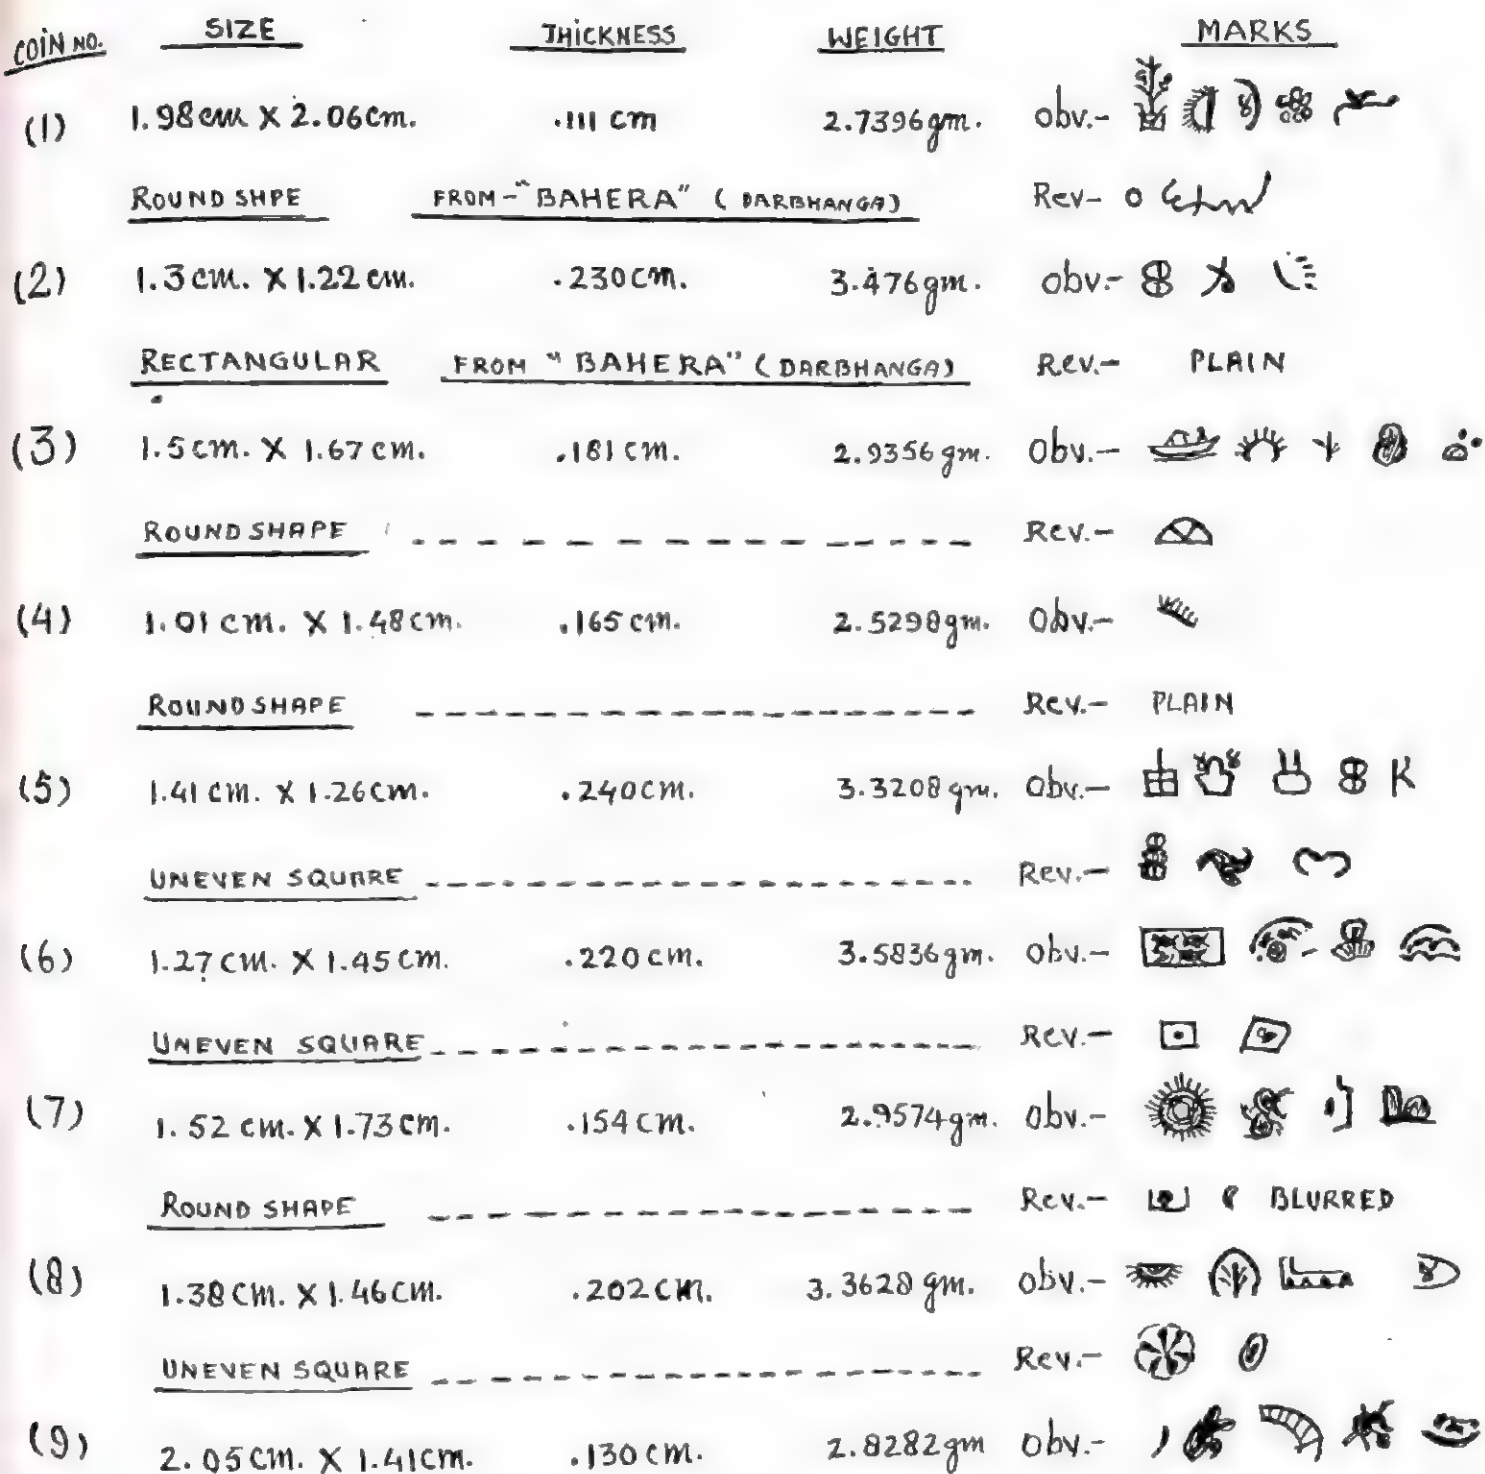 COIN NO. SIZE THICKNESS WEIGHT MARKS
(1) 1.98 cm X 2.06 cm. .111 cm 2.7396 gm. Obv.-
ROUND SHPE FROM - "BAHERA" ( DARBHANGA) Rev-
(2) 1.3 cm. X 1.22 cm. .230 cm. 3.476 gm. Obv.-
RECTANGULAR FROM " BAHERA" ( DARBHANGA) Rev.- PLAIN
(3) 1.5 cm. X 1.67 cm. .181 cm. 2.9356 gm. Obv.-
ROUND SHAPE Rev.-
(4) 1.01 cm. X 1.48 cm. .165 cm. 2.5298 gm. Obv.-
ROUND SHAPE Rev.- PLAIN
(5) 1.41 cm. X 1.26 cm. .240 cm. 3.3208 gm. Obv.-
UNEVEN SQUARE Rev.-
(6) 1.27 cm. X 1.45 cm. .220 cm. 3.5836 gm. Obv.-
UNEVEN SQUARE Rev.-
(7) 1.52 cm. X 1.73 cm. .154 cm. 2.9574 gm. Obv.-
ROUND SHAPE Rev.- BLURRED
(8) 1.38 cm. X 1.46 cm. .202 cm. 3.3628 gm. Obv.-
UNEVEN SQUARE Rev.-
(9) 2.05 cm. X 1.41 cm. .130 cm. 2.8282 gm Obv.-